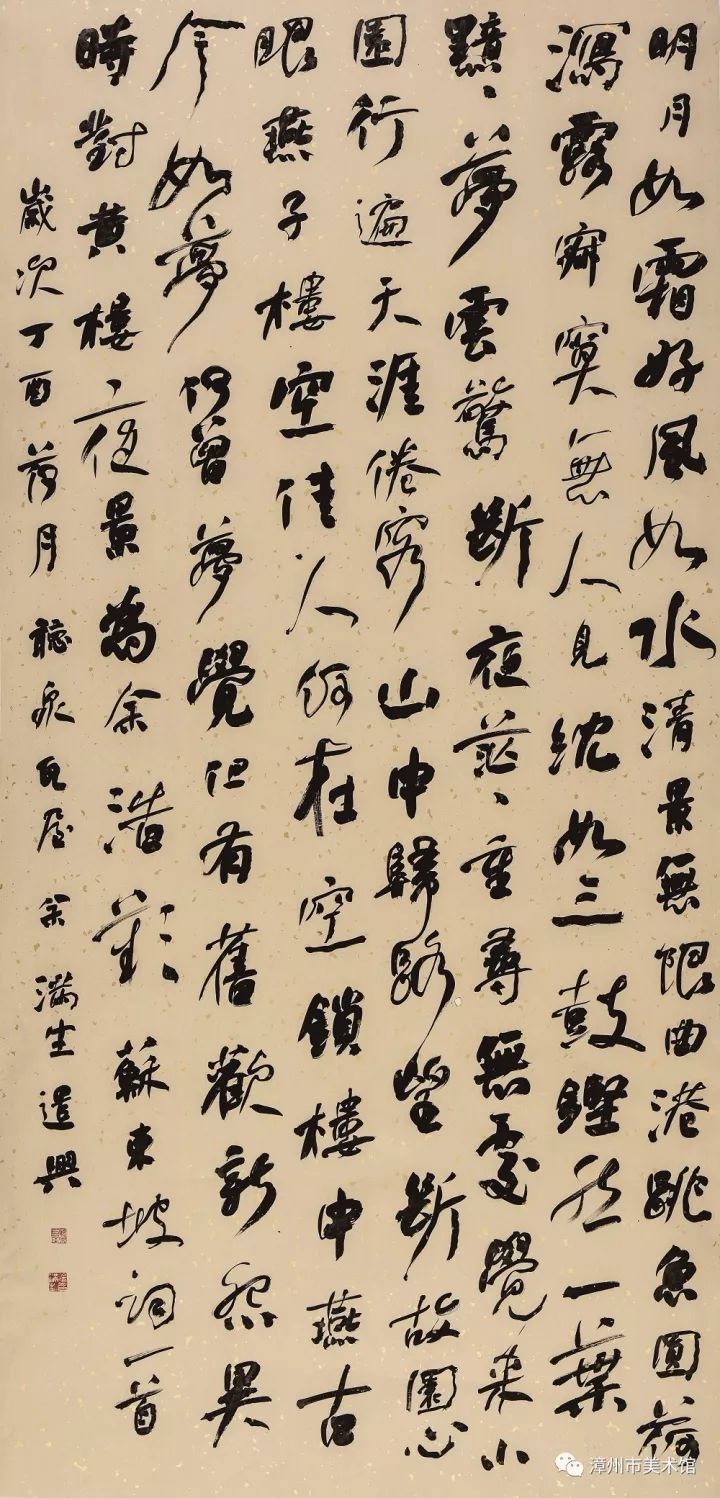 明月如霜好風如水清景無限曲港跳魚圓荷
瀉露寂寞無人見紞如三鼓鏗然一葉
黯々夢雲驚斷夜茫々重尋無處覺來小
園行遍天涯倦客山中歸路望斷故園心
眼燕子樓空佳人何在空鎖樓中燕古
今如夢何曾夢覺但有舊歡新怨異
時對黃樓夜景為余浩歎 蘇東坡詞一首
歲次丁酉荷月 聽泉瓦屋 余滿生遣興
漳州市美术馆